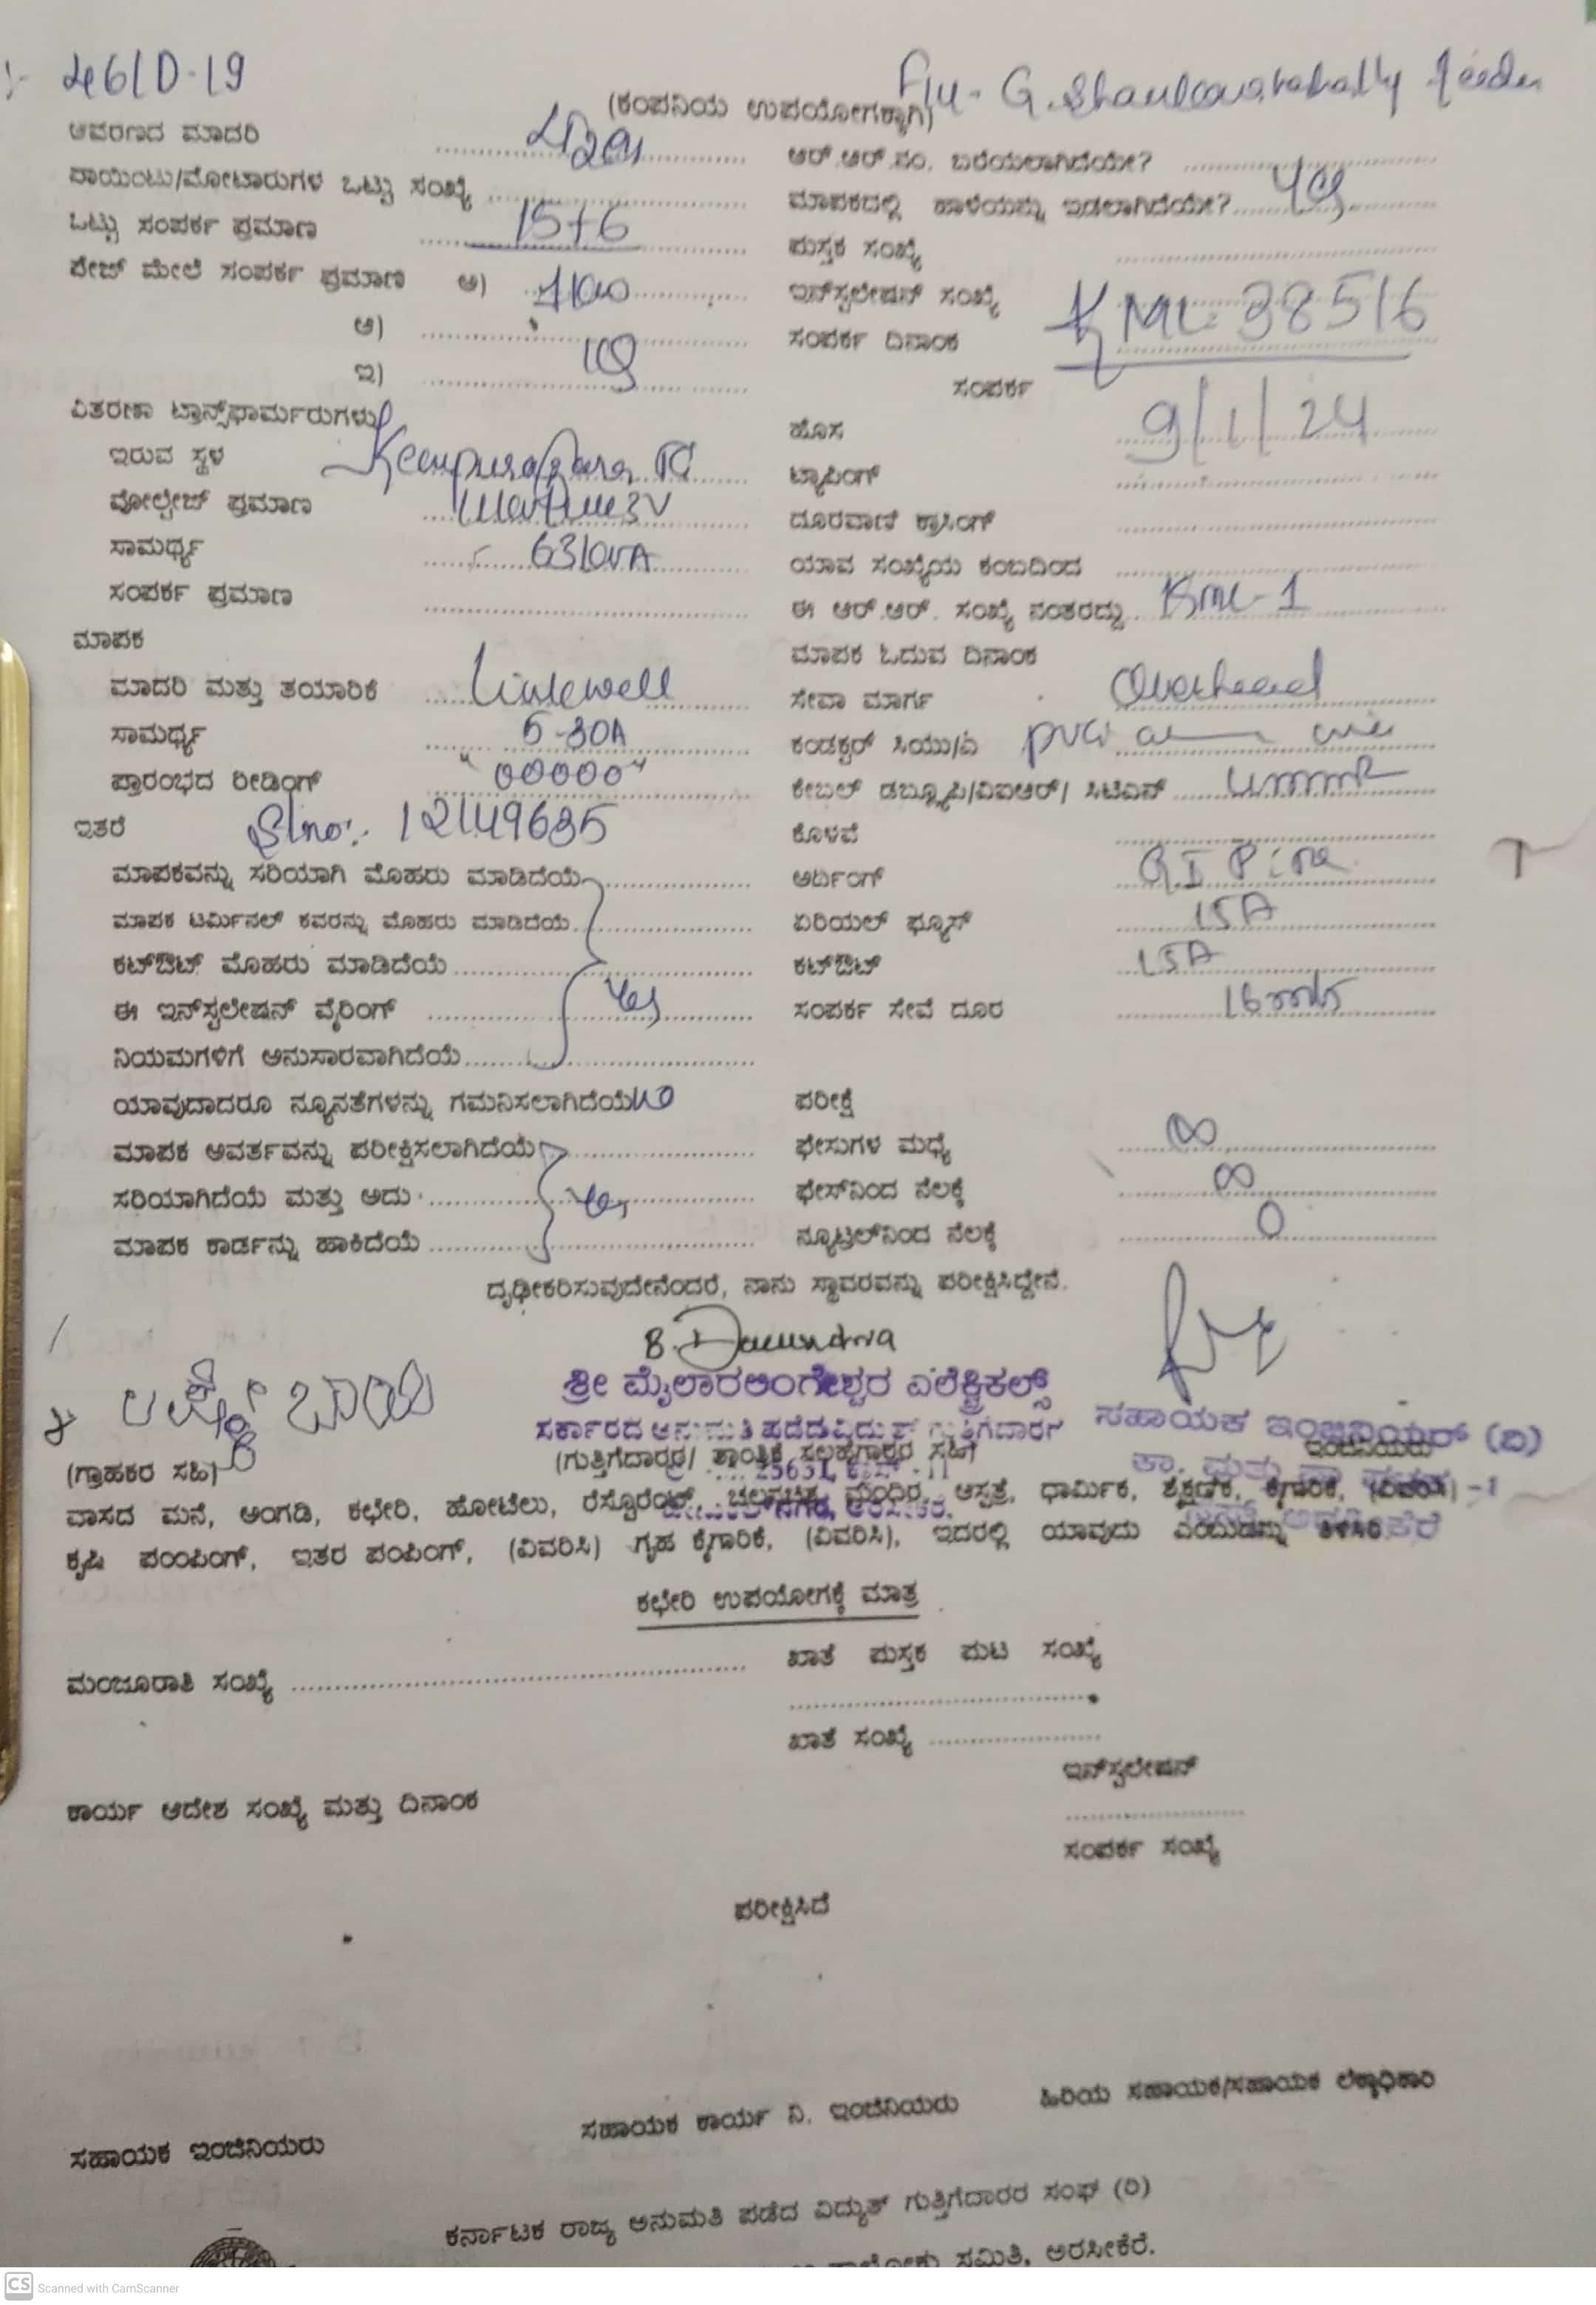 46/D-19
G. Shankaranahally feeder
(ಕಂಪನಿಯ ಉಪಯೋಗಕ್ಕಾಗಿ)
ಆವರಣದ ಮಾದರಿ
ಆರ್.ಆರ್.ನಂ. ಬರೆಯಲಾಗಿದೆಯೇ?
ಪಾಯಿಂಟು/ಮೋಟಾರುಗಳ ಒಟ್ಟು ಸಂಖ್ಯೆ
ಮಾಪಕದಲ್ಲಿ ಹಾಳೆಯನ್ನು ಇಡಲಾಗಿದೆಯೇ? yes
ಒಟ್ಟು ಸಂಪರ್ಕ ಪ್ರಮಾಣ 15+6
ಪುಸ್ತಕ ಸಂಖ್ಯೆ
ಪೇಜ್ ಮೇಲೆ ಸಂಪರ್ಕ ಪ್ರಮಾಣ ಅ)
ಇನ್‌ಸ್ಟಲೇಷನ್ ಸಂಖ್ಯೆ KML 38516
ಆ)
ಸಂಪರ್ಕ ದಿನಾಂಕ
ಇ)
ಸಂಪರ್ಕ
ವಿತರಣಾ ಟ್ರಾನ್ಸ್‌ಫಾರ್ಮರುಗಳು
ಹೊಸ 9/1/24
ಇರುವ ಸ್ಥಳ Kempurapura
ಟ್ಯಾಪಿಂಗ್
ವೋಲ್ಟೇಜ್ ಪ್ರಮಾಣ
ದೂರವಾಣಿ ಕ್ರಾಸಿಂಗ್
ಸಾಮರ್ಥ್ಯ 63KVA
ಯಾವ ಸಂಖ್ಯೆಯ ಕಂಬದಿಂದ
ಸಂಪರ್ಕ ಪ್ರಮಾಣ
ಈ ಆರ್.ಆರ್. ಸಂಖ್ಯೆ ನಂತರದ್ದು KML-1
ಮಾಪಕ
ಮಾಪಕ ಓದುವ ದಿನಾಂಕ
ಮಾದರಿ ಮತ್ತು ತಯಾರಿಕೆ Linkwell
ಸೇವಾ ಮಾರ್ಗ Overhead
ಸಾಮರ್ಥ್ಯ 5-30A
ಕಂಡಕ್ಟರ್ ಸಿಯು/ಎ pvc
ಪ್ರಾರಂಭದ ರೀಡಿಂಗ್ "00000"
ಕೇಬಲ್ ಡಬ್ಲ್ಯೂಪಿ/ವಿಐಆರ್/ ಸಿಟಿಎಸ್ 4mm2
ಇತರೆ Slno:- 12149635
ಕೊಳವೆ
ಮಾಪಕವನ್ನು ಸರಿಯಾಗಿ ಮೊಹರು ಮಾಡಿದೆಯೆ
ಅರ್ಥಿಂಗ್ G.I Pipe
ಮಾಪಕ ಟರ್ಮಿನಲ್ ಕವರನ್ನು ಮೊಹರು ಮಾಡಿದೆಯೆ
ಏರಿಯಲ್ ಫ್ಯೂಸ್ 15A
ಕಟ್‌ಔಟ್ ಮೊಹರು ಮಾಡಿದೆಯೆ
ಕಟ್‌ಔಟ್ 15A
ಈ ಇನ್‌ಸ್ಟಲೇಷನ್ ವೈರಿಂಗ್ yes
ಸಂಪರ್ಕ ಸೇವೆ ದೂರ 16mts
ನಿಯಮಗಳಿಗೆ ಅನುಸಾರವಾಗಿದೆಯೆ
ಯಾವುದಾದರೂ ನ್ಯೂನತೆಗಳನ್ನು ಗಮನಿಸಲಾಗಿದೆಯೆ no
ಪರೀಕ್ಷೆ
ಮಾಪಕ ಆವರ್ತವನ್ನು ಪರೀಕ್ಷಿಸಲಾಗಿದೆಯೆ
ಫೇಸುಗಳ ಮಧ್ಯೆ ∞
ಸರಿಯಾಗಿದೆಯೆ ಮತ್ತು ಅದು yes
ಫೇಸ್‌ನಿಂದ ನೆಲಕ್ಕೆ ∞
ಮಾಪಕ ಕಾರ್ಡನ್ನು ಹಾಕಿದೆಯೆ
ನ್ಯೂಟ್ರಲ್‌ನಿಂದ ನೆಲಕ್ಕೆ 0
ದೃಢೀಕರಿಸುವುದೇನೆಂದರೆ, ನಾನು ಸ್ಥಾವರವನ್ನು ಪರೀಕ್ಷಿಸಿದ್ದೇನೆ.
ಲಕ್ಷ್ಮೀ ಬಾಯಿ
ಶ್ರೀ ಮೈಲಾರಲಿಂಗೇಶ್ವರ ಎಲೆಕ್ಟ್ರಿಕಲ್ಸ್
ಸರ್ಕಾರದ ಅನುಮತಿ ಪಡೆದ ವಿದ್ಯುತ್ ಗುತ್ತಿಗೆದಾರರ
ಸಹಾಯಕ ಇಂಜಿನಿಯರ್ (ವಿ)
ಇಂಜಿನಿಯರು
(ಗ್ರಾಹಕರ ಸಹಿ)
(ಗುತ್ತಿಗೆದಾರರ/ ತಾಂತ್ರಿಕ ಸಲಹೆಗಾರರ ಸಹಿ)
ವಾಸದ ಮನೆ, ಅಂಗಡಿ, ಕಛೇರಿ, ಹೋಟೆಲು, ರೆಸ್ಟೊರೆಂಟ್, ಚಲನಚಿತ್ರ ಮಂದಿರ, ಆಸ್ಪತ್ರೆ, ಧಾರ್ಮಿಕ, ಶೈಕ್ಷಣಿಕ, ಕೈಗಾರಿಕೆ, (ವಿವರಿಸಿ)
ಕೃಷಿ ಪಂಂಪಿಂಗ್, ಇತರ ಪಂಪಿಂಗ್, (ವಿವರಿಸಿ) ಗೃಹ ಕೈಗಾರಿಕೆ, (ವಿವರಿಸಿ), ಇದರಲ್ಲಿ ಯಾವುದು ಎಂಬುದನ್ನು ತಿಳಿಸಿರಿ
ಕಛೇರಿ ಉಪಯೋಗಕ್ಕೆ ಮಾತ್ರ
ಮಂಜೂರಾತಿ ಸಂಖ್ಯೆ
ಖಾತೆ ಪುಸ್ತಕ ಪುಟ ಸಂಖ್ಯೆ
ಖಾತೆ ಸಂಖ್ಯೆ
ಇನ್‌ಸ್ಟಲೇಷನ್
ಕಾರ್ಯ ಆದೇಶ ಸಂಖ್ಯೆ ಮತ್ತು ದಿನಾಂಕ
ಸಂಪರ್ಕ ಸಂಖ್ಯೆ
ಪರೀಕ್ಷಿಸಿದೆ
ಸಹಾಯಕ ಇಂಜಿನಿಯರು
ಸಹಾಯಕ ಕಾರ್ಯ ನಿ. ಇಂಜಿನಿಯರು
ಹಿರಿಯ ಸಹಾಯಕ/ಸಹಾಯಕ ಲೆಕ್ಕಾಧಿಕಾರಿ
ಕರ್ನಾಟಕ ರಾಜ್ಯ ಅನುಮತಿ ಪಡೆದ ವಿದ್ಯುತ್ ಗುತ್ತಿಗೆದಾರರ ಸಂಘ (ರಿ)
ತಾಲ್ಲೋಕು ಸಮಿತಿ, ಅರಸೀಕೆರೆ.
CS Scanned with CamScanner